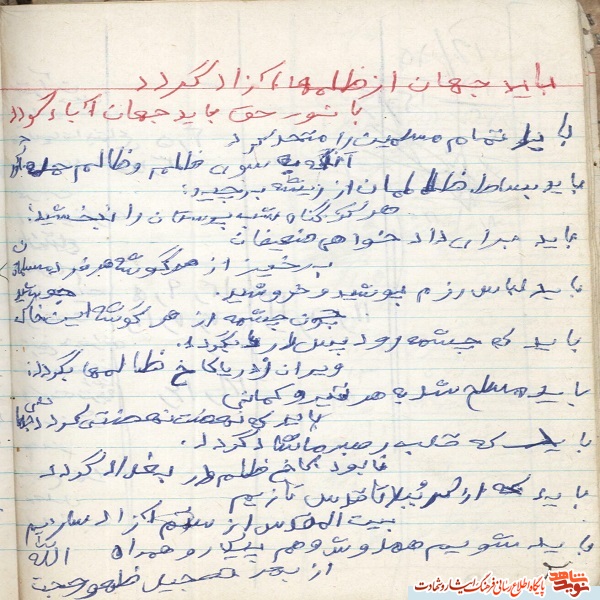 باید جهان از ظلمها آزاد گردد
با نور حق باید جهان آباد گردد
باید تمام مسلمین را متحد کرد
آنگه به سوی ظلم و ظالم حمله
باید بساط ظالمان از ریشه برچید
هر گز گناه شب پرستان را نبخشید
باید برای داد خواهی ضعیفان
برخیزد از هر گوشه هر فرد مسلمان
باید لباس رزم پوشید و خروشید
چون چشمه از هر گوشه این خاک جوشید
باید که چشمه رود پس دریا بگردد
ویران ز دریا کاخ ظالمها بگردد
باید مسلح شد به هر تیر و کمانی
باید که نهضت نهضتی گردد جهانی
باید که قلب رهبر ما شاد گردد
نابود کاخ ظلم در بغداد گردد
باید که از کربلا تا قدس تازیم
بیت المقدس از ستم آزاد سازیم
باید شویم همدوش و هم پیکار و همراه
از بهر تعجیل ظهور حجت الله
شاهد
نوید
پایگاه اطلاع رسانی فرهنگ ایثار و شهادت